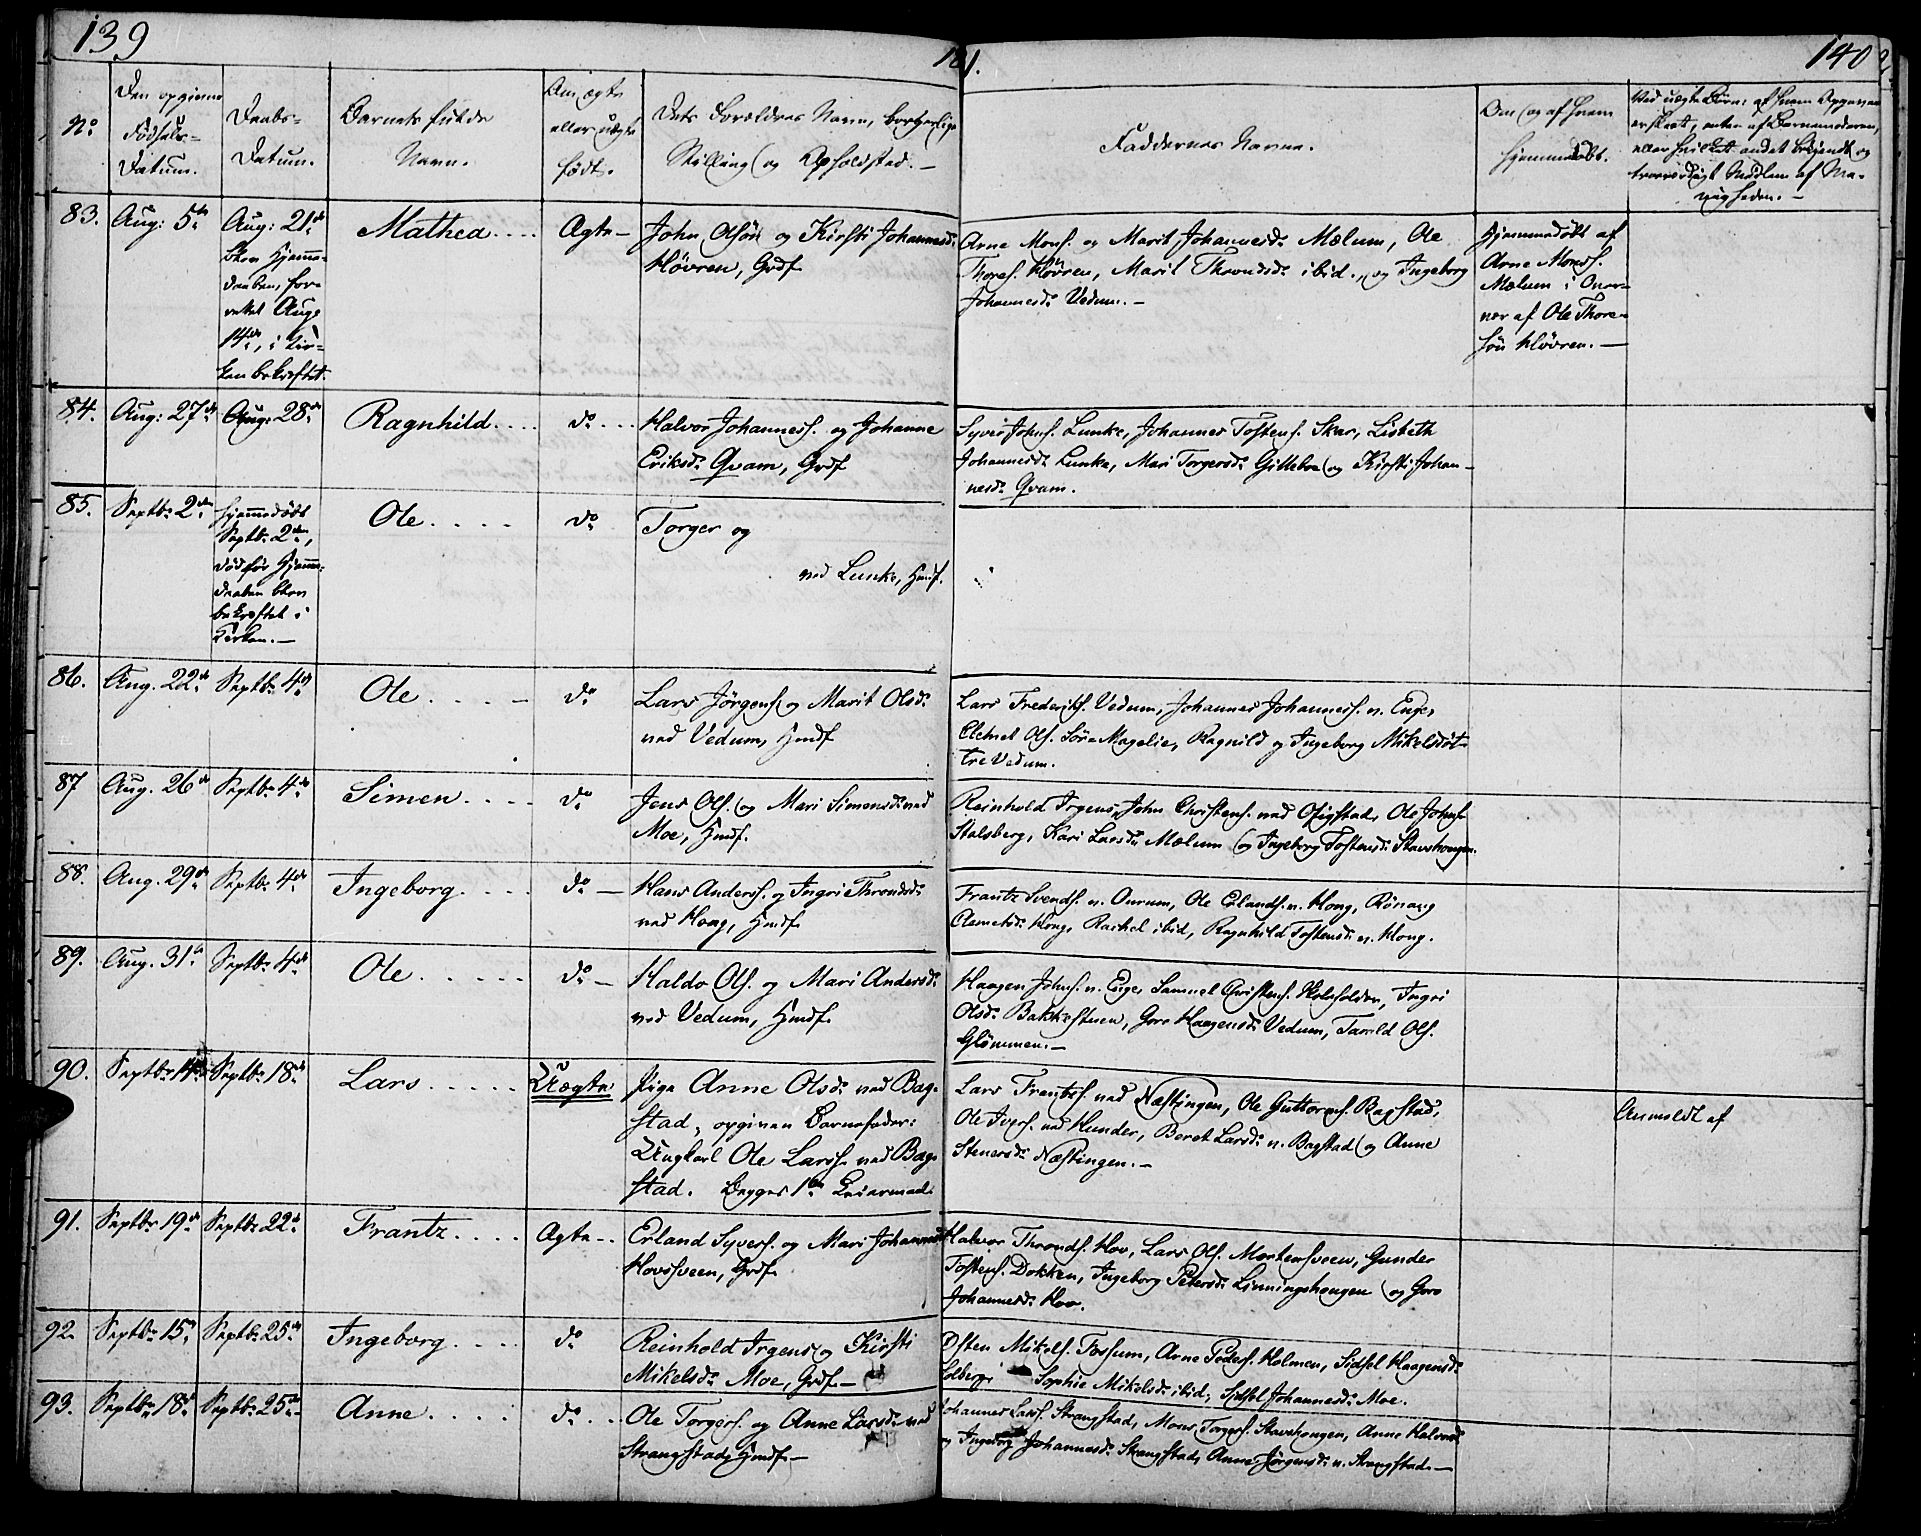 139
181.
140
No
Den opgivne Fødsels-Datum.
Daabs-Datum.
Barnets fulde Navn.
Om ægte eller uægte født.
Dets Forældres Navn, borgerlige Stilling og Opholdsted.
Faddernes Navne.
Om og af hvem hjemmedøbt.
83. Aug: 5te
Aug: 21de
blev Hjemme-
daaben, for-
rettet Aug:
14de, i Kir-
ken bekræftet.
Mathea....
Ægte—
John Olsøn og Kirsti Johannesd:
Høvren, Grdf.
Arne Mons. og Marit Johannesd: Mælum, Ole
Thores. Høvren, Marit Throndsd: ibid., og Ingeborg
Johannesd: Vedum.—
Hjemmedøbt af
Arne Mons.
Mælum i Over-
vær af Ole Thore-
søn Høvren.—
84. Aug: 27de Aug: 28de Ragnhild.... do...
Halvor Johanness. og Johanne
Eriksd: Qvam, Grdf
Syver Johns. Lunke, Johannes Tostens. Skar, Lisbeth
Johannesd: Lunke, Mari Torgersd: Gillebo og Kirsti Johan-
nesd: Qvam.
85. Septb: 2den
Hjemmedøbt
Septb: 2den,
død før Hjemme-
daaben blev
bekræftet i
Kirken.—
Ole.....
do
Torger og
ved Lunke, Hmdf.
86. Aug. 22de Septb: 4de Ole..... do
Lars Jørgens. og Marit Olsd:
ved Vedum, Hmdf
Lars Frederiks. Vedum, Johannes Johanness. n. Enge,
Clemet Ols. Søre Magelie, Ragnild og Ingeborg Mikelsdøt-
tre Vedum.
87 Aug. 26de Septb: 4de Simen.... do
Jens Ols. og Mari Simensd: ved
Moe, Hmdf.
Reinhold Irgens, John Christens. ved Ofigstad, Ole Johns.
Stalsberg, Kari Larsd: Mælum og Ingeborg Tostensd: Stavshougen.
88. Aug. 29de Septb: 4de Ingeborg.... do—
Hans Anders. og Ingri Throndsd:
ved Hong, Hmdf.
Frantz Svends. n. Aurum, Ole Erlands. n. Hong, Rønnaug
Clemetsd: Hong, Rachel ibid, Ragnhild Tostensd: n. Hong.
89. Aug. 31te Septb: 4de Ole..... do—
Haldo Ols. og Mari Andersd:
ved Vedum, Hmdf.
Haagen Johns. n. Enge, Samuel Christens. Holeholen, Ingri
Olsd: Bakkestuen, Goro Haagensd: Vedum, Tarald Ols.
Glømmen.—
90. Septb: 14de Septb: 18de Lars..... Uægte
Pige Anne Olsd: ved Bag-
stad, opgiven Barnefader:
Ungkarl Ole Larss. ved Bag-
stad. Begges 1ste Leiermaal.
Lars Frantzs. ved Næstingen, Ole Guttorms. Bagstad,
Ole Ivers. ved Hunder, Beret Larsd: n. Bagstad og Anne
Stenersd: Næstingen.—
Anmeldt af
91. Septbr 19de Septb: 22de Frantz.... Ægte..
Erland Syvers. og Mari Johannesd:
Hovssveen, Grdf.
Halvor Thronds. Hov, Lars Ols. Mortensveen, Gunder
Tostens. Dokken, Ingeborg Petersd: Linningshougen og Goro
Johannesd: Hov.
92. Septb: 15de Septb: 25de Ingeborg.... do
Reinhold Irgens og Kirsti
Mikelsd: Moe, Grdf.—
Østen Mikels. Fossum, Arne Peders. Holmen, Sidsel Haagensd:
Solberg, Sophie Mikelsd: ibid, Sidsel Johannesd: Moe.
93. Septb: 18de Septb: 25de Anne.... do..
Ole Torgers. og Anne Larsd: ved
Strangstad, Hmdf.—
Johannes Larss. Strangstad, Mons Torgers. Stavshougen, Anne Halvorsd:
og Ingeborg Johannesd: Strangstad, Anne Jørgensd: n. Strangstad.—